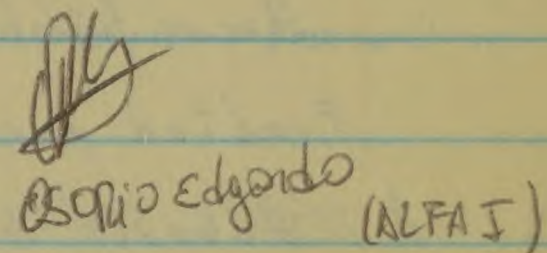 Osorio Edgardo (ALFA I)